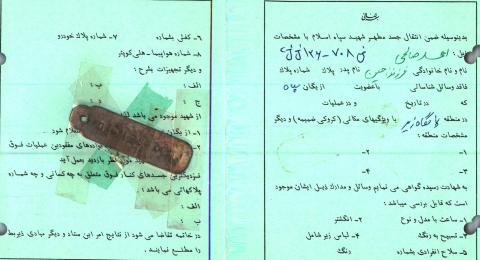 بدینوسیله ضمن انتقال جسد مطهر شهید سپاه اسلام با مشخصات
ذیل: احمد صالحی ۷۰۸-۱۲۶
نام و نام خانوادگی فرزند حسن نام پدر پلاک شماره پلاک
فاقد وسائل شناسائی باعضویت از یگان سپاه
که در تاریخ و در عملیات
در منطقه با ویژگیهای مکانی (کروکی ضمیمه) و دیگر
مشخصات منطقه:
۱- ۲-
۳- ۴-
به شهادت رسیده گواهی می نمایم وسائل و مدارک ذیل ایشان موجود
است که قابل بررسی میباشد:
۱- ساعت با مدل و نوع ۲- انگشتر
۳- تسبیح به رنگ ۴- لباس زیر شامل
۵- سلاح انفرادی بشماره رنگ
۶- کفش بشماره ۷- شماره پلاک خودرو
۸- شماره هواپیما - هلی کوپتر
و دیگر تجهیزات بشرح:
الف: ب:
ج: د:
از شهید موجود می باشد
۱- از یگان شود
مفقودین عملیات فوق
مورد نظر بازدید بعمل آید
نزدیکترین جسدهای کنار فوق متعلق به چه کسانی و چه شماره
پلاکهائی می باشد:
الف:
ب:
در خاتمه تقاضا می شود از نتایج امر این ستاد و دیگر مبادی ذیربط
را مطلع نمایند.